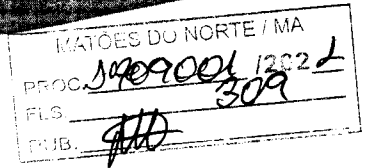 MATÕES DO NORTE / MA
PROC. 1709001 /2022
FLS. 309
RUB.